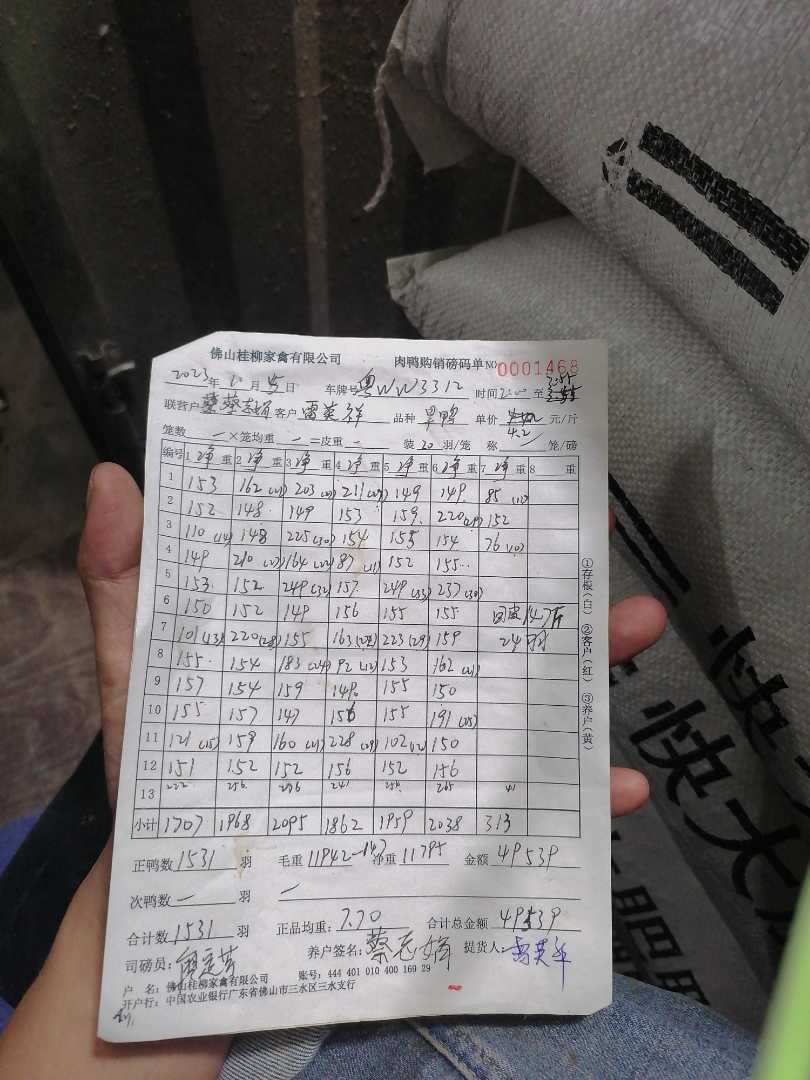 佛山桂柳家禽有限公司 肉鸭购销磅码单 NO 0001468
2023年 月 5日 车牌号 粤WW3312 时间 至
联营户 客户 雷英祥 品种 单价 4.2 元/斤
笼数 一 ×笼均重 一 =皮重 - 装 20 羽/笼 称 笼/磅
编号 1 净 重 2 净 重 3 净 重 4 净 重 5 净 重 6 净 重 7 净 重 8 重
1 153 162(21) 203 211 149 149 85
2 152 148 149 153 159 220 152
3 110(14) 148 225(30) 154 155 154 76(10)
4 149 210 164 87(11) 152 155
5 153 152 249(32) 157 249(33) 237(30)
6 150 152 149 156 155 155 147斤
7 101(13) 220(28) 155 163 223(29) 159 24羽
8 155 154 183(24) 92(12) 153 162(21)
9 157 154 159 149 155 150
10 155 157 147 156 155 191(25)
11 121(15) 159 160(21) 228(29) 102 150
12 151 152 152 156 152 156
13 222 256 276 241 256 265 41
小计 1707 1968 2095 1862 1959 2038 313
正鸭数 1531 羽 毛重 11942-147 净重 11795 金额 49539
次鸭数 一 羽 一
合计数 1531 羽 正品均重: 7.70 合计总金额 49539
司磅员: 养户签名: 提货人: 雷英祥
户 名: 佛山桂柳家禽有限公司 账号: 444 401 010 400 169 29
开户行: 中国农业银行广东省佛山市三水区三水支行
①存根(白) ②客户(红) ③养户(黄)
快大
快大
肥